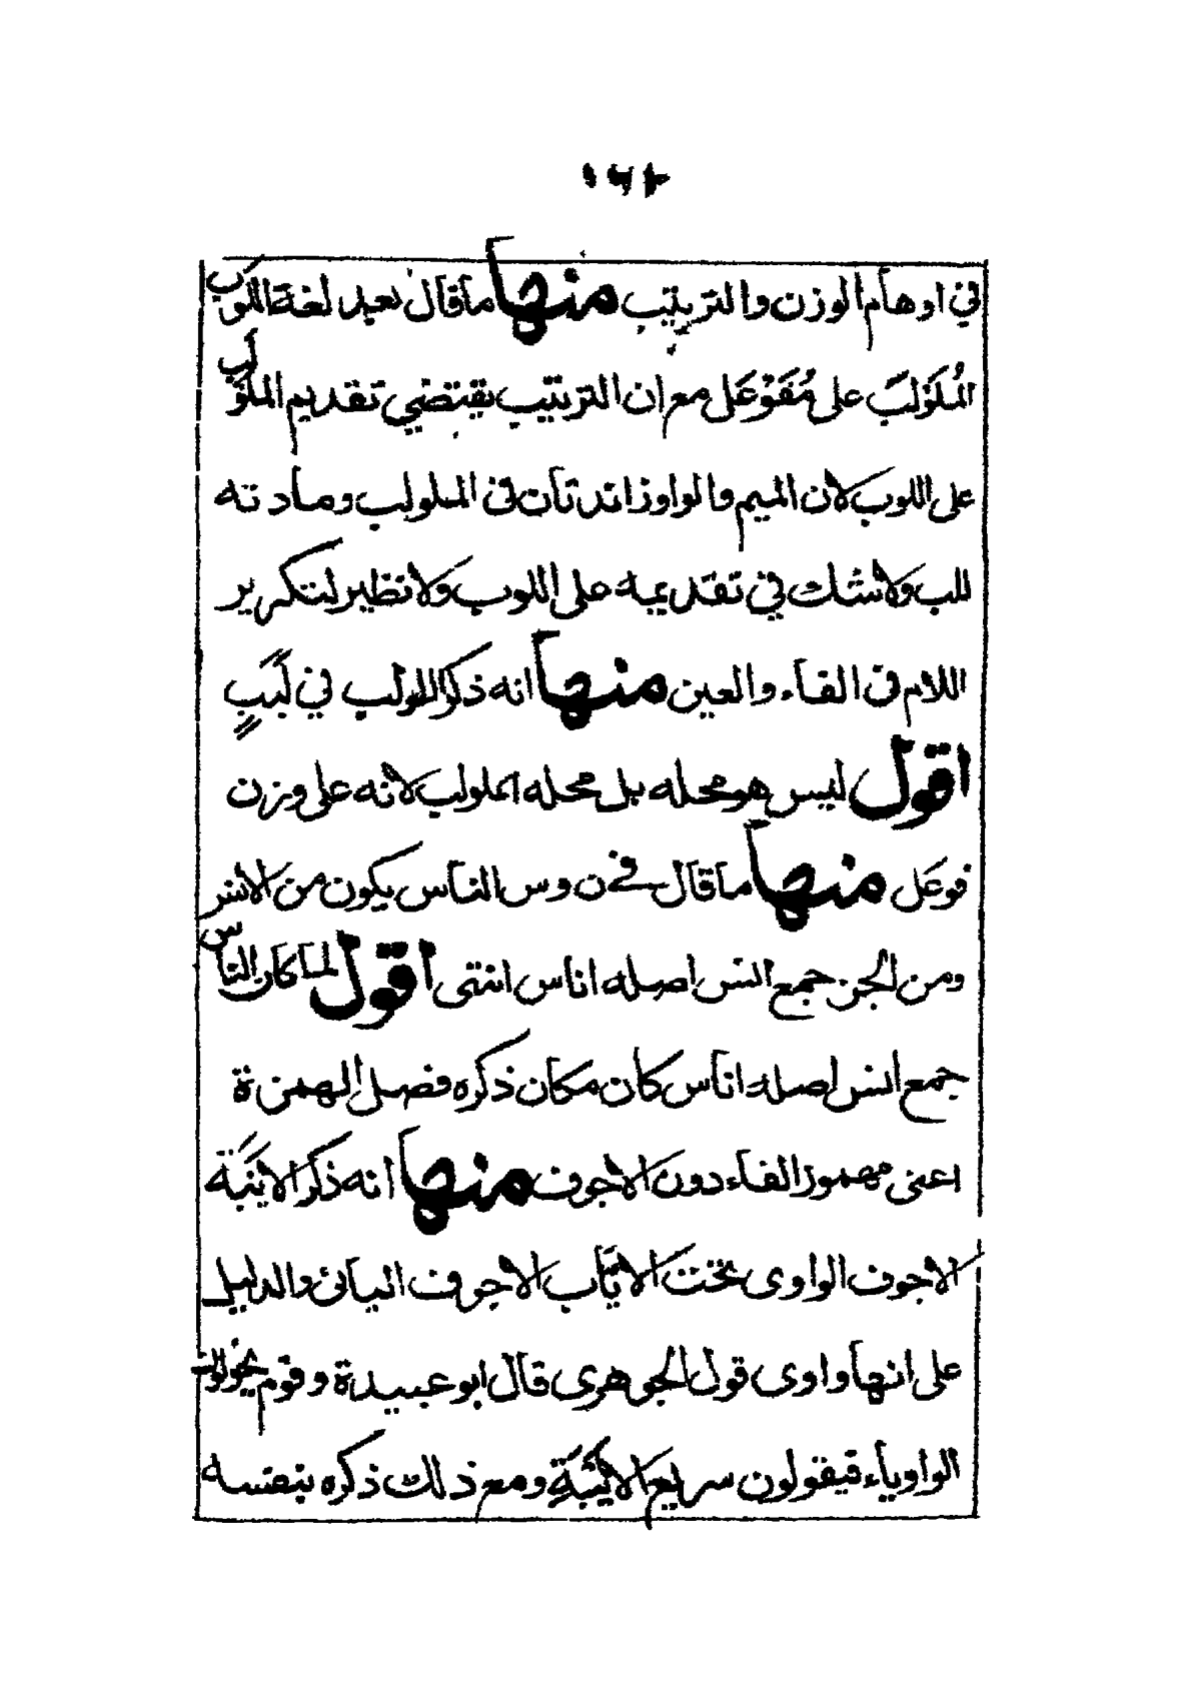 في اوهام الوزن والترتيب منها ما قال بعيد لغة اللوب
المُلَوْلَب على مُفَوْعَل مع ان الترتيب يقتضي تقديم الملولب
على اللوب لان الميم والواو زائدتان في الملولب ومادته
للب ولا شك في تقديمه على اللوب ولا نظير لتكرير
اللام في الفاء والعين منها انه ذكر اللولب في لَبَبٍ
اقول ليس هو محله بل محله الملولب لانه على وزن
فوعَل منها ما قال في ن وس الناس يكون من الانس
ومن الجن جمع انس اصله اناس انتهى اقول لما كان الناس
جمع انس اصله اناس كان مكان ذكره فصل الهمزة
اعنى مهموز الفاء دون الاجوف منها انه ذكر الاَيْبَة
الاجوف الواوى تحت الاياب الاجوف اليائى والدليل
على انها واوى قول الجوهرى قال ابو عبيدة وقوم يحولون
الواو ياء فيقولون سريع الاَيْبَةِ ومع ذلك ذكره بنفسه